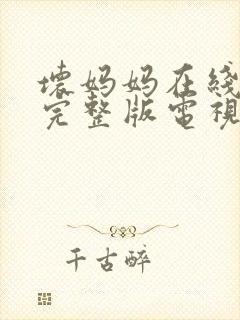 壞妈妈在线
完整版電視
千古醉